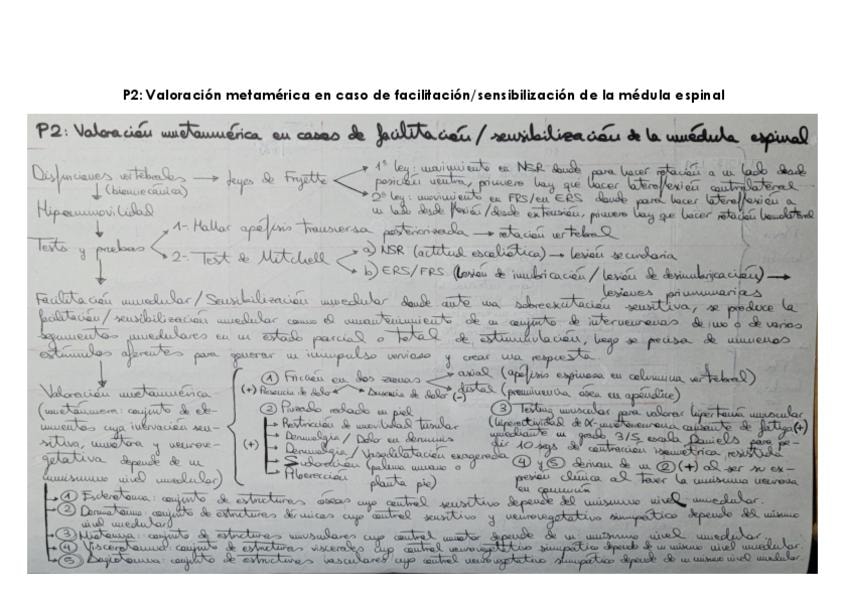 P2: Valoración metamérica en caso de facilitación/sensibilización de la médula espinal
P2: Valoración metamérica en casos de facilitación/sensibilización de la médula espinal
Disfunciones vertebrales → Leyes de Fryette
(biomecánica)
1ª ley: movimiento en NSR donde para hacer rotación a un lado desde
posición neutra, primero hay que hacer lateroflexión contralateral
2ª ley: movimiento en FRS/en ERS donde para hacer lateroflexión a
un lado desde flexión/desde extensión, primero hay que hacer rotación homolateral
Hipomovilidad
Tests y pruebas
1- Hallar apófisis transversa posteriorizada → rotación vertebral
2- Test de Mitchell
a) NSR (actitud escoliótica) → lesión secundaria
b) ERS/FRS (lesión de imbricación/lesión de desimbricación) →
lesiones primarias
Facilitación medular/Sensibilización medular donde ante una sobreexcitación sensitiva, se produce la
facilitación/sensibilización medular como el mantenimiento de un conjunto de interneuronas de uno o de varios
segmentos medulares en un estado parcial o total de estimulación, luego se precisa de menores
estímulos aferentes para generar un impulso nervioso y crear una respuesta.
Valoración metamérica
(metámera: conjunto de ele-
mentos cuya inervación sen-
sitiva, motora y neurove-
getativa depende de un
mismo nivel medular)
① Fricción en dos zonas
axial (apófisis espinosa en columna vertebral)
distal (prominencia ósea en apéndice)
(+) Presencia de dolor
Ausencia de dolor (-)
② Pinzado rodado en piel
(+)
Restricción de movilidad tisular
Dermalgia/Dolor en dermis
Dermalgia/Vasodilatación exagerada
Sudoración (palma mano o
planta pie)
Piloerección
③ Testing muscular para valorar hipertonía muscular
(hiperactividad de α-motoneurona causante de fatiga (+)
mediante un grado 3/5 escala Daniels para pe-
dir 10 segs de contracción isométrica resistida
④ y ⑤ derivan de un ② (+) al ser su ex-
presión clínica al tener la misma neurona
en común
① Esclerotoma: conjunto de estructuras óseas cuyo control sensitivo depende del mismo nivel medular.
② Dermatoma: conjunto de estructuras dérmicas cuyo control sensitivo y neurovegetativo simpático depende del mismo
nivel medular
③ Miotoma: conjunto de estructuras musculares cuyo control motor depende de un mismo nivel medular.
④ Viscerotoma: conjunto de estructuras viscerales cuyo control neurovegetativo simpático depende de un mismo nivel medular.
⑤ Angiotoma: conjunto de estructuras vasculares cuyo control neurovegetativo simpático depende de un mismo nivel medular.